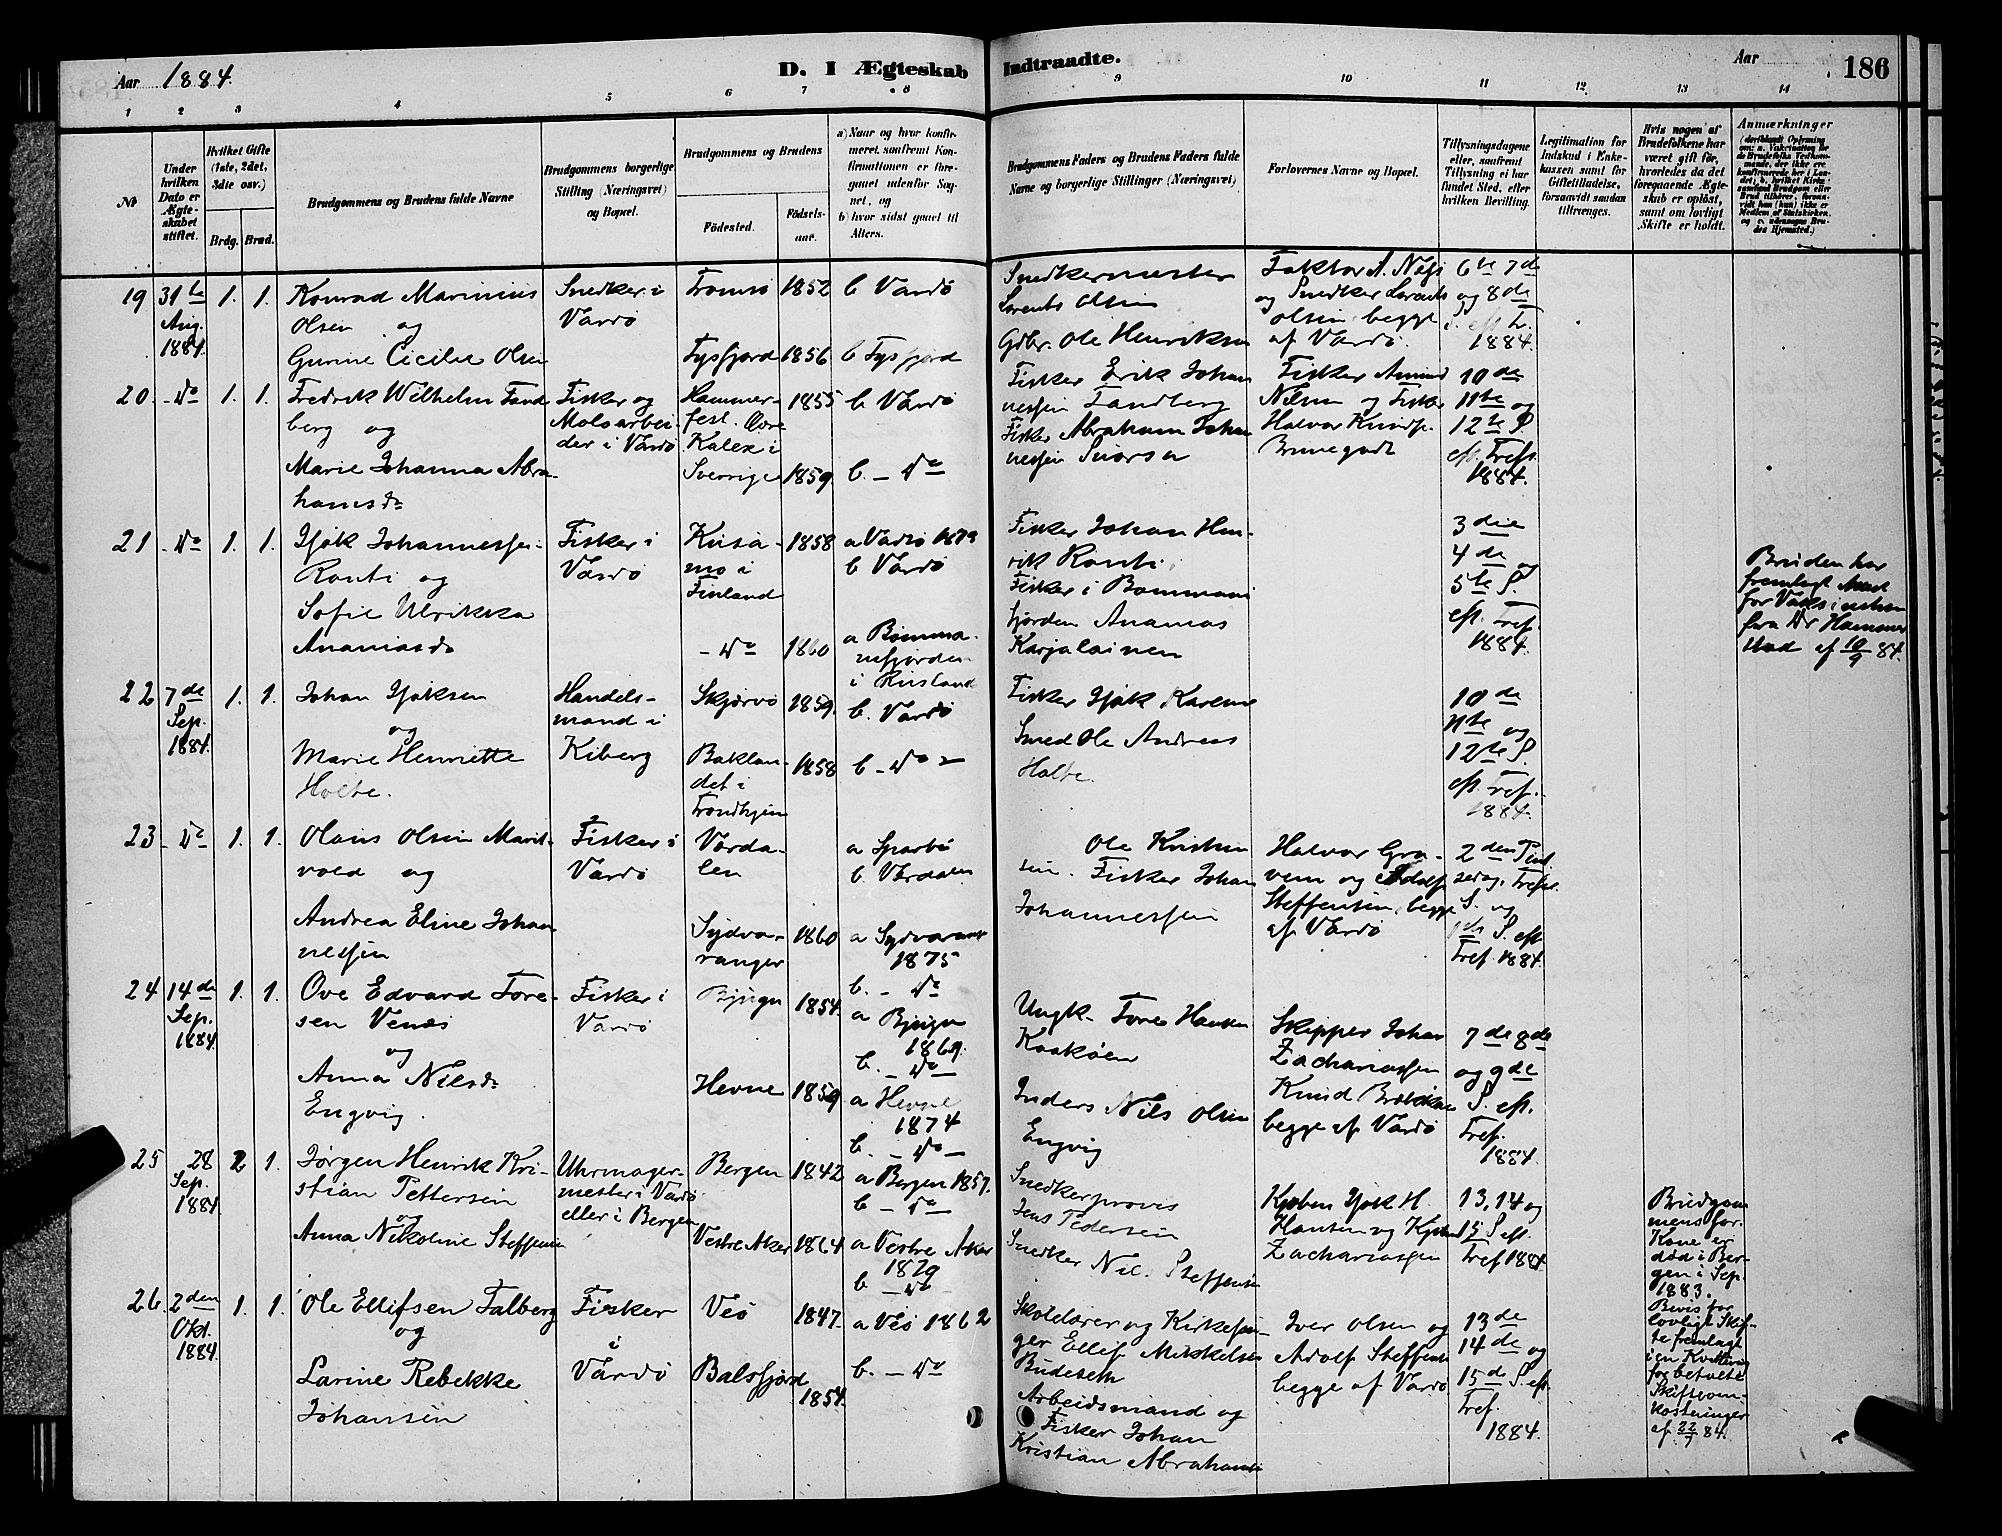 Aar 1884.
D. I Ægteskab Indtraadte.
Aar 186
1 2 3 4 5 6 7 8 9 10 11 12 13 14
No
Under hvilken Dato er Ægteskabet stiftet.
Hvilket Gifte (1ste, 2det, 3die osv.)
Brdg. Brud.
Brudgommens og Brudens fulde Navne
Brudgommens borgerlige Stilling (Næringsvei) og Bopæl.
Brudgommens og Brudens
Fødested.
Fødselsaar.
a) Naar og hvor konfirmeret, saafremt Konfirmationen er foregaaet udenfor Sognet, og
b) hvor sidst gaaet til Alters.
Brudgommens Faders og Brudens Faders fulde Navne og borgerlige Stillinger (Næringsvei)
Forlovernes Navne og Bopæl.
Tillysningsdagene eller, saafremt Tillysning ei har fundet Sted, efter hvilken Bevilling.
Legitimation for Indskud i Enkekassen samt for Giftetilladelse, forsaavidt saadan tiltrænges.
Hvis nogen af Brudefolkene har været gift før, hvorledes da det foregaaende Ægteskab er opløst, samt om lovligt Skifte er holdt.
Anmærkninger
19 31te Aug. 1884. 1. 1.
Konrad Marinius
Olsen og
Gurine Cicilie Olsen
Snedker i
Vardö
Tromsö 1852 b Vardö
Tysfjord 1856 b Tysfjord
Snedkermester
Lorents Olsen
Gdbr. Ole Henriksen
Faktor A. Ness
og Snedker Lorents
Olsen begge
af Vardö.
6te 7de
og 8de
S. eft. Tr.
1884.
20. Do 1. 1.
Fredrik Wilhelm Tandberg og
Marie Johanna Abrahamsdr
Fisker og
Moloarbeider i Vardö
Hammerfest. 1855 b Vardö
Övre
Kalex i
Sverrige 1859 b - Do
Fisker Erik Johannessen Tandberg
Fisker Abraham Johannessen
Fisker Amund
Nilsen og Fisker
Halvor
10de
11te og
12te S.
eft. Tref.
1884.
21 Do 1. 1.
Isak Johannessen
Ronti og
Sofie Ulrikka
Ananiasdr
Fisker i
Vardö
Kusamo i
Finland 1858
a Vardö 1879
b Vardö
- Do 1860
a Bömmanefjorden
i Rusland
Fisker Johan Henrik Ronti
Fisker i Bommanifjorden Ananias
Karjalainen
3die
4de og
5te S.
eft. Tref.
1884.
Bruden har
fremlagt Attest
for Vaksination
fra Dr Hammerstad af 10/9 84.
22 7de Sep. 1884. 1. 1.
Johan Isaksen
og
Marie Henriette
Holte.
Handelsmand i
Kiberg
Skjervö 1859. b. Vardö
Baklandet i
Trondhjem 1858 b - Do
Fisker Isak
Smed Ole Andreas
Holte.
10de
11te og
12te S.
eft. Tref.
1884.
23 Do 1. 1.
Olaus Olsen Maritvold og
Andrea Eline Johannessen
Fisker i
Vardö
Værdalen
a Sparbö
b. Værdalen
Sydvaranger 1860
a Sydvaranger
1875
b. - Do
Ole Kristensen.
Fisker Johan
Johannessen
Halvor Graven og Adolf
Steffensen, begge
af Vardö
2den Pintsedag, Trefs.
S. og
1ste S. eft.
Tref. 1884.
24 14de Sep. 1884. 1. 1.
Ove Edvard Toresen Venæs
og
Anna Nilsdr
Engvig.
Fisker i
Vardö
Bjugn 1854.
a Bjugn
1869.
b. - Do
Hevne 1859
a Hevne
1874
b. - Do -
Ungk. Tore Hansen
Inders Nils Olsen
Engvig
Skipper Johan
Zachariassen
Knud
begge af Vardö
7de 8de
og 9de
S. eft.
Tref.
1884.
25 28 Sep. 1884 2 1.
Jörgen Henrik Kristian Pettersen
og
Anna Nikoline Steffensen
Uhrmagermester i Vardö
eller i Bergen
Bergen 1842
a Bergen 1857.
b - Do -
Vestre Aker 1864
a Vestre Aker
1879
b - Do
Snedkersvend
Jens Pedersen
Snedker Nils Steffensen
Kjöbm Isak H.
Hansen og Kjöbm
Zachariassen
13, 14 og
15 S. eft.
Tref. 1884.
Brudgommens for.
Kone er
död i Bergen i Sep.
1883.
Bevis for
lovligt Skifte fremlagt
i en Kvittering
for betalte
Skifteomkostninger
af 22/9 84.
26 2den Okt. 1884. 1. 1.
Ole Ellifsen Talberg
og
Larine Rebekke
Johansen
Fisker
i
Vardö
Veö 1847. a Veö 1862
Balsfjord 1854. b. - Do
Skolelærer og Kirkesanger Ellif Mikkelsen
Arbeidsmand og
Fisker Johan
Kristian Abrahamsen
Iver Olsen og
Adolf Steffensen
begge af Vardö
13de
14de og
15de S. eft.
Tref.
1884.